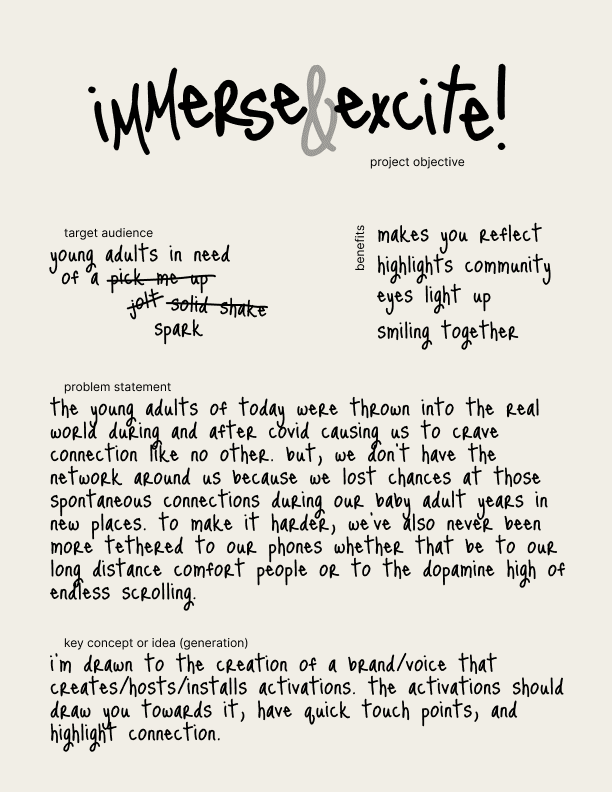 immerse & excite!
project objective
target audience
young adults in need
of a pick me up
jolt solid shake
spark
benefits
makes you reflect
highlights community
eyes light up
smiling together
problem statement
the young adults of today were thrown into the real
world during and after covid causing us to crave
connection like no other. but, we don't have the
network around us because we lost chances at those
spontaneous connections during our baby adult years in
new places. to make it harder, we've also never been
more tethered to our phones whether that be to our
long distance comfort people or to the dopamine high of
endless scrolling.
key concept or idea (generation)
i'm drawn to the creation of a brand/voice that
creates/hosts/installs activations. the activations should
draw you towards it, have quick touch points, and
highlight connection.